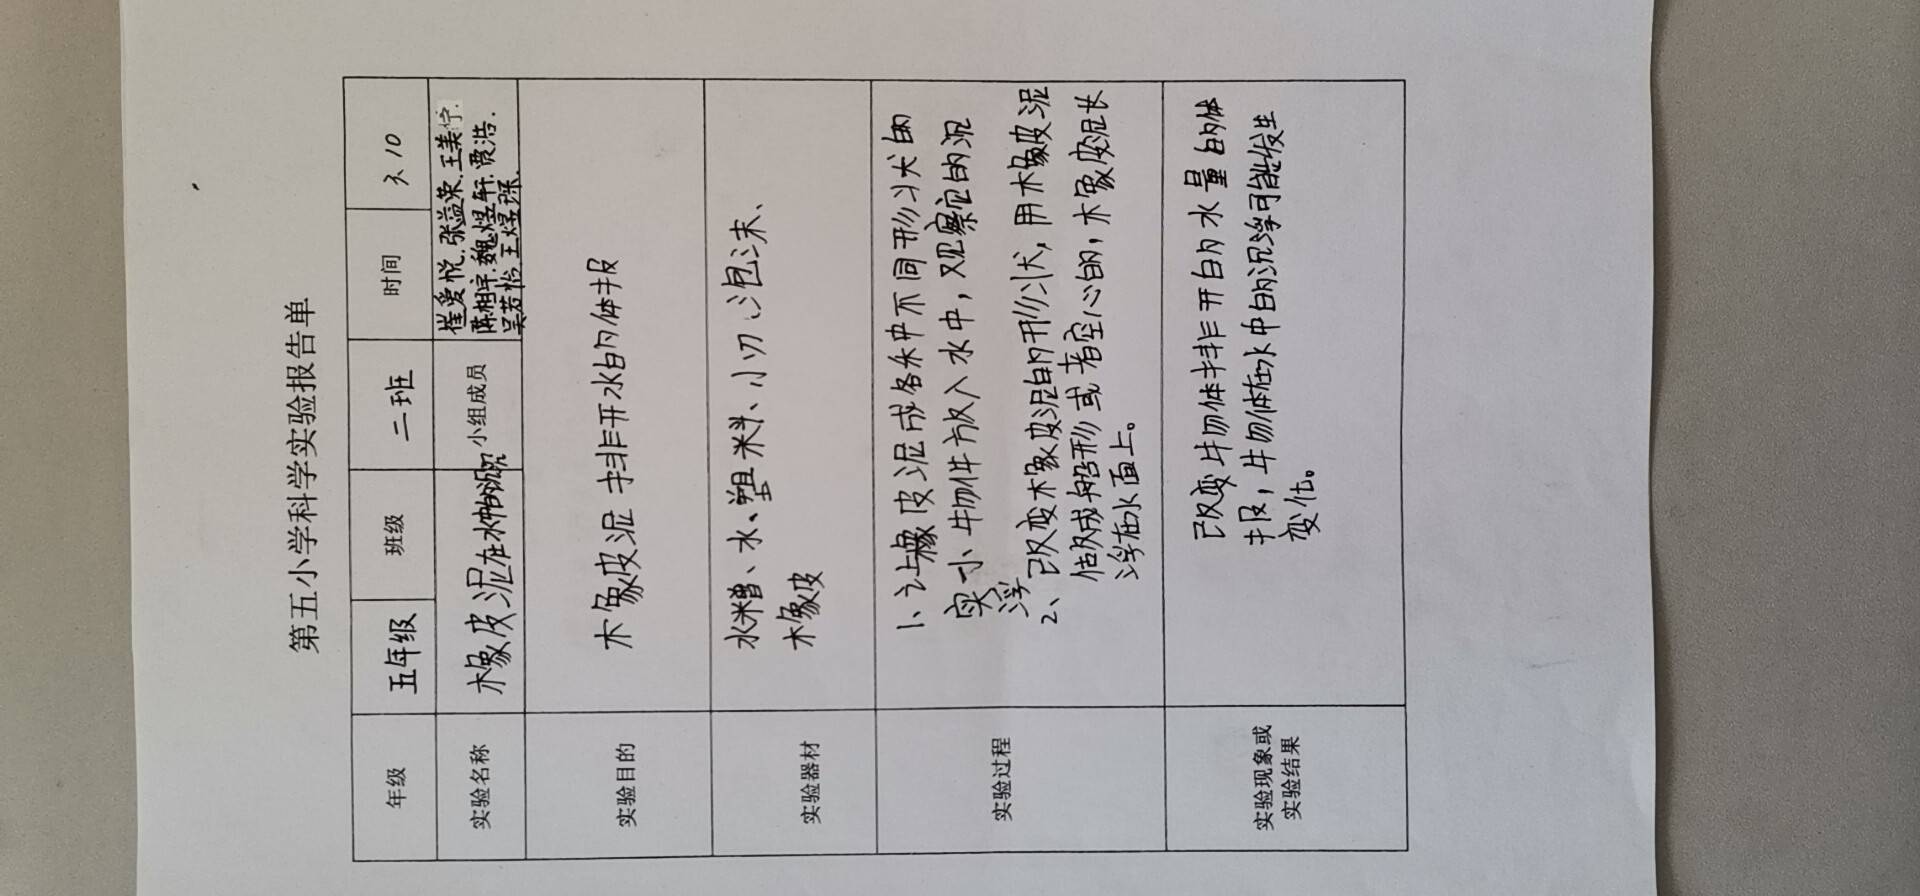 第五小学科学实验报告单
年级 五年级 班级 二班 时间 3.10
实验名称 橡皮泥在水中的沉浮 小组成员 崔爱悦.张益荣.王美佇.
陈相宇.魏煜轩.贾浩.
吴若怡.王煜琛.
实验目的 橡皮泥排开水的体报
实验器材 水槽、水、塑料、小刀、泡沫、
橡皮
实验过程 1、让橡皮泥成各种不同形状的
实小物体放入水中,观察它的沉
浮
2、改变橡皮泥的形状,用橡皮泥
做成船形或者空心的,橡皮泥长
浮在水面上。
实验现象或
实验结果
改变物体排开的水量的体
报,物体在水中的沉浮可能发生
变化。